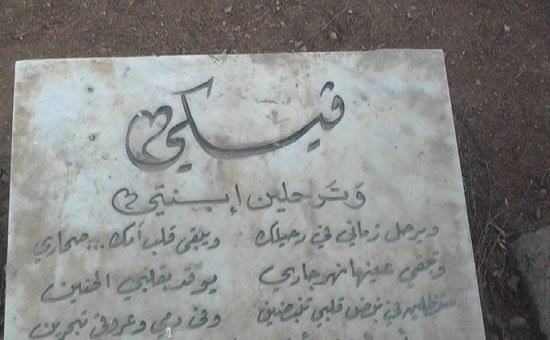 ڤيكي
وترحلين إبنتي
ويرحل زماني في رحيلك ويلقى قلب أمك...صحاري
وتلقي عينها نهر جاري يوقد بقلبي الحنين
ستظلين في نبض قلبي تنبضين وفي دمي وعروقي تبحرين